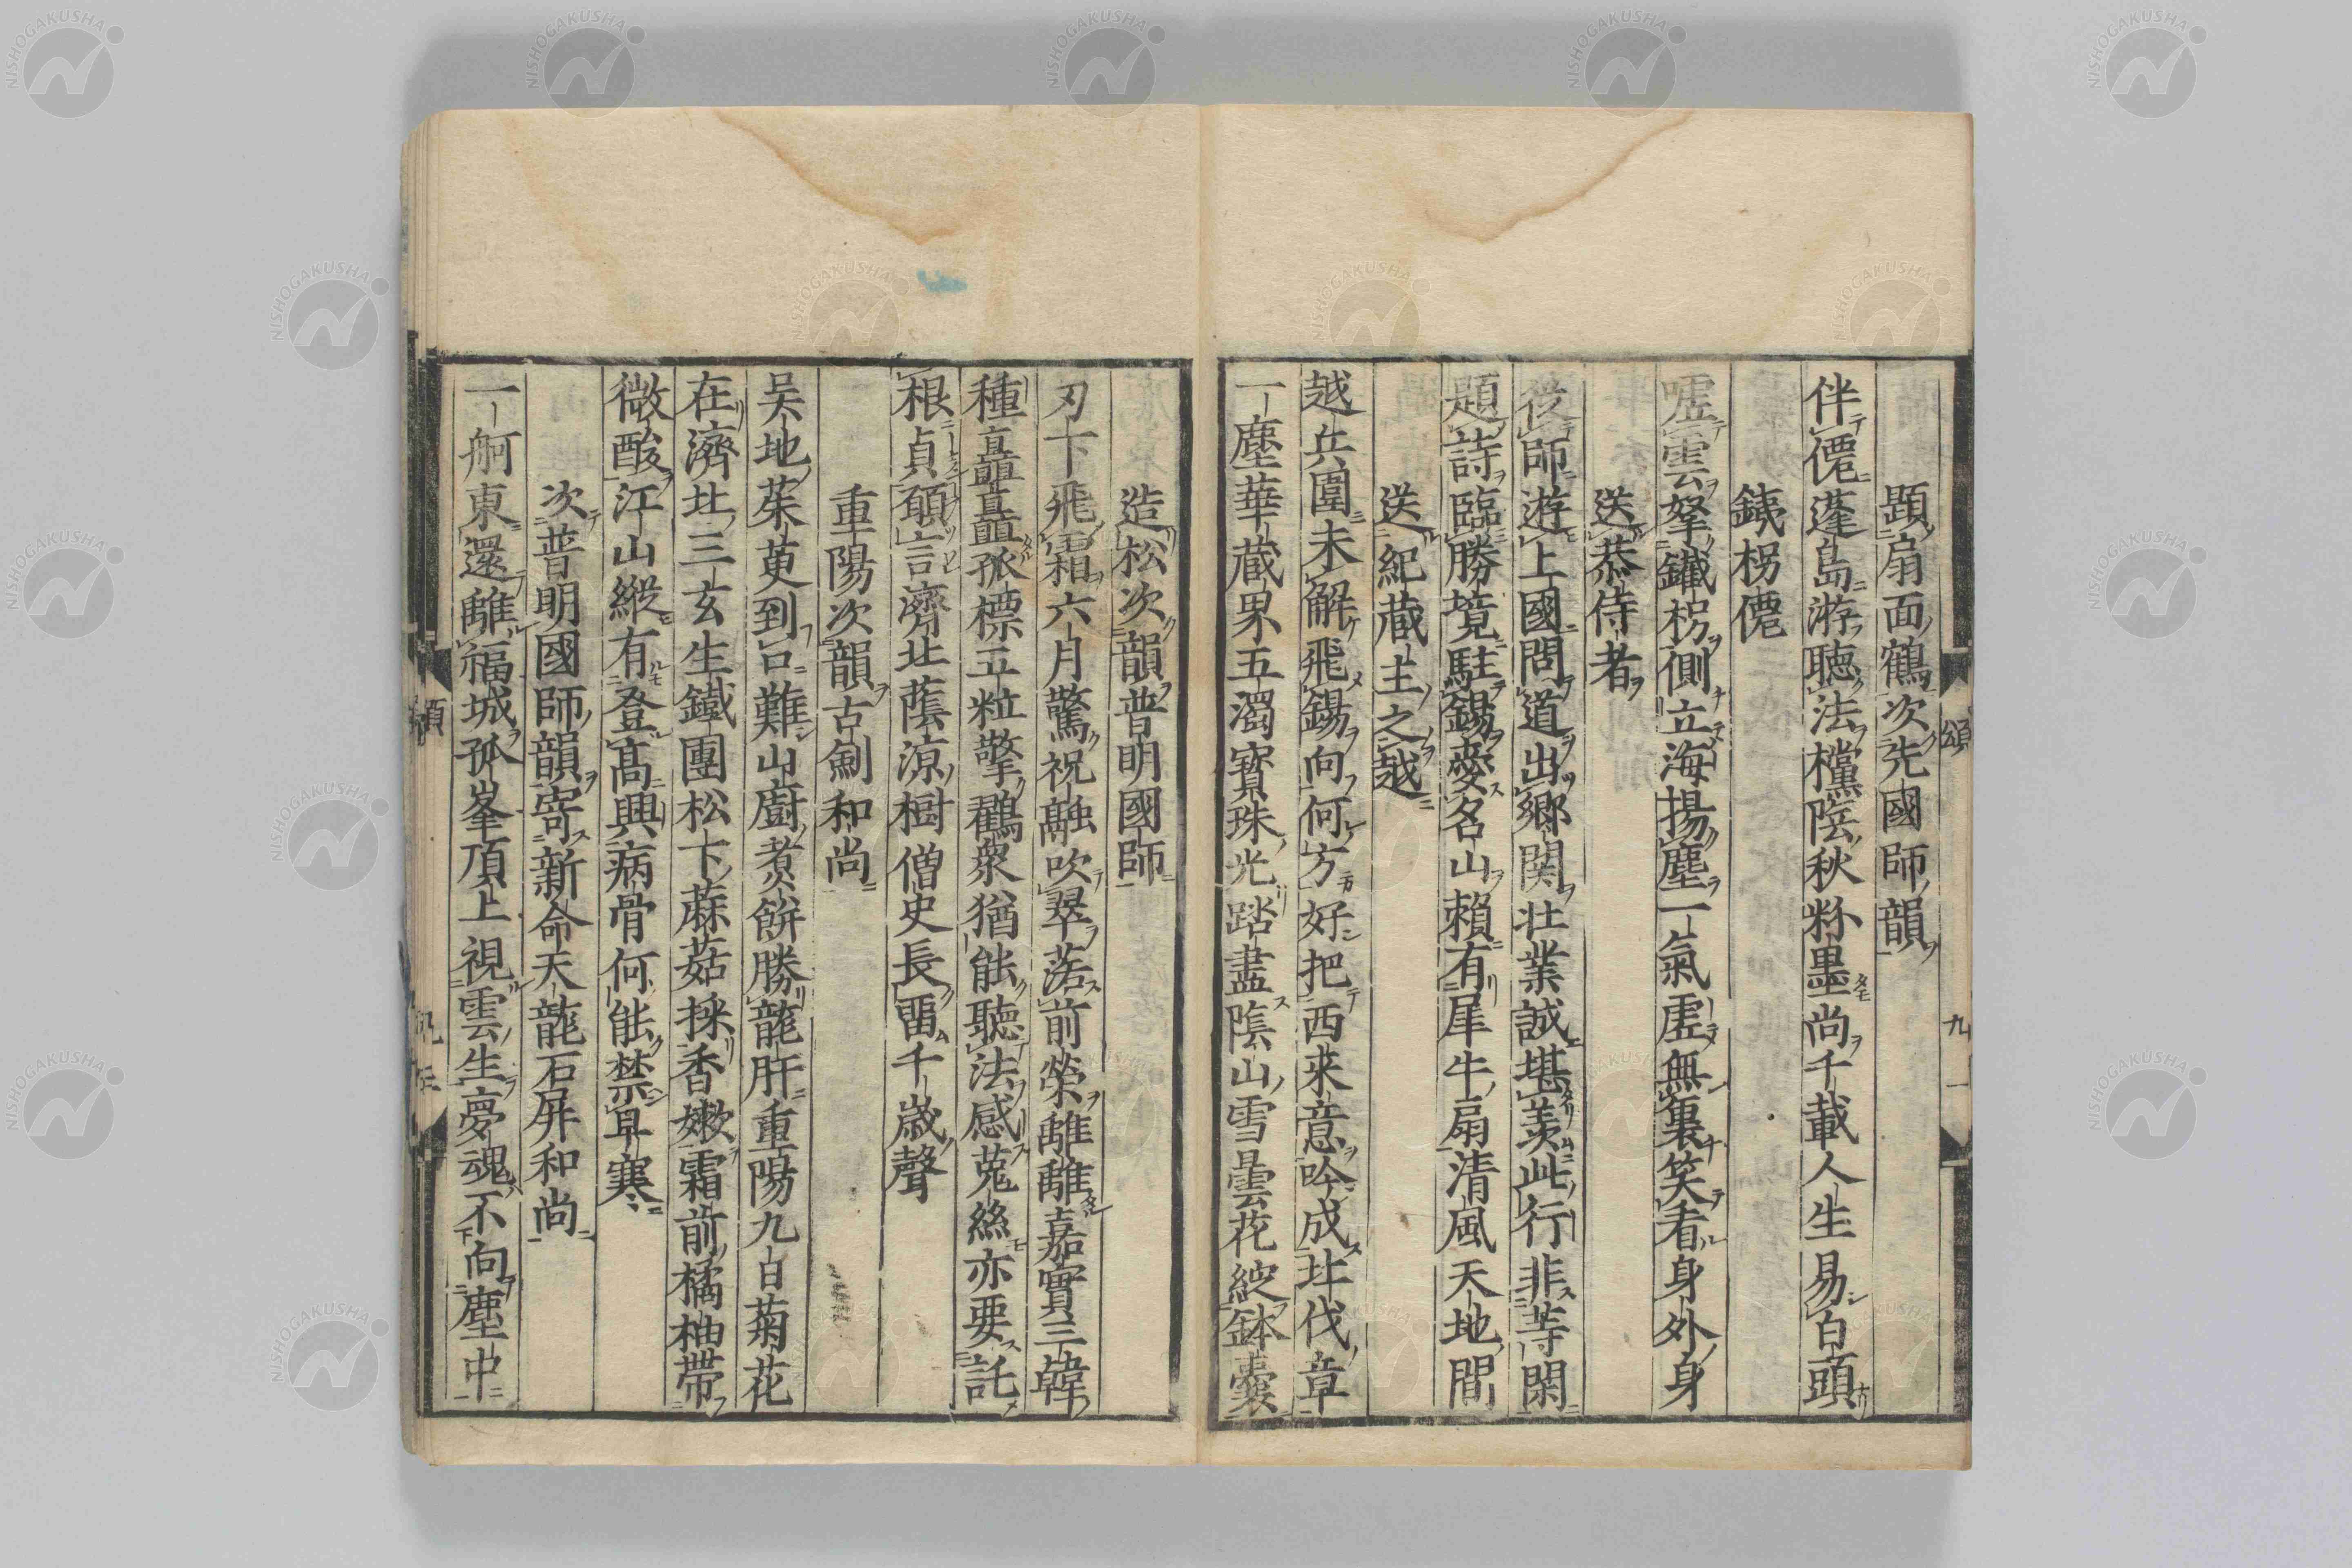 題扇面鶴次先國師韻
伴僊蓬島游聽法欓陰秋粉墨尚千載人生易白頭
銕柺僊
噓雲拏鐵柺側立海揚塵一氣虛無裏笑看身外身
送恭侍者
從師游上國問道出鄉関壮業誠堪羨此行非等閑
題詩臨勝境駐錫愛名山賴有犀牛扇清風天地間
送紀蔵主之越
越兵圍未解飛錫向何方好把西来意吟成北伐章
一塵華蔵界五濁寶珠光踏盡陰山雪曇花綻鉢囊
頌
九
造松次韻普明國師
刃下飛霜六月驚祝融吹翠落前榮離離嘉實三韓
種矗矗孤標五粒擎鸛衆猶能聽法感莵絲亦要託
根貞頤言濟北蔭凉樹僧史長畱千歳聲
重陽次韻古劍和尚
吴地茱萸到口難山廚煑餅勝龍肝重陽九日菊花
在濟北三玄生鐵團松下蔴菇採香嫩霜前橘柚帶
微酸江山縱有登髙興病骨何能禁早寒
次普明國師韻寄新命天龍石屏和尚
一舸東還離福城孤峯頂上視雲生夢魂不向塵中